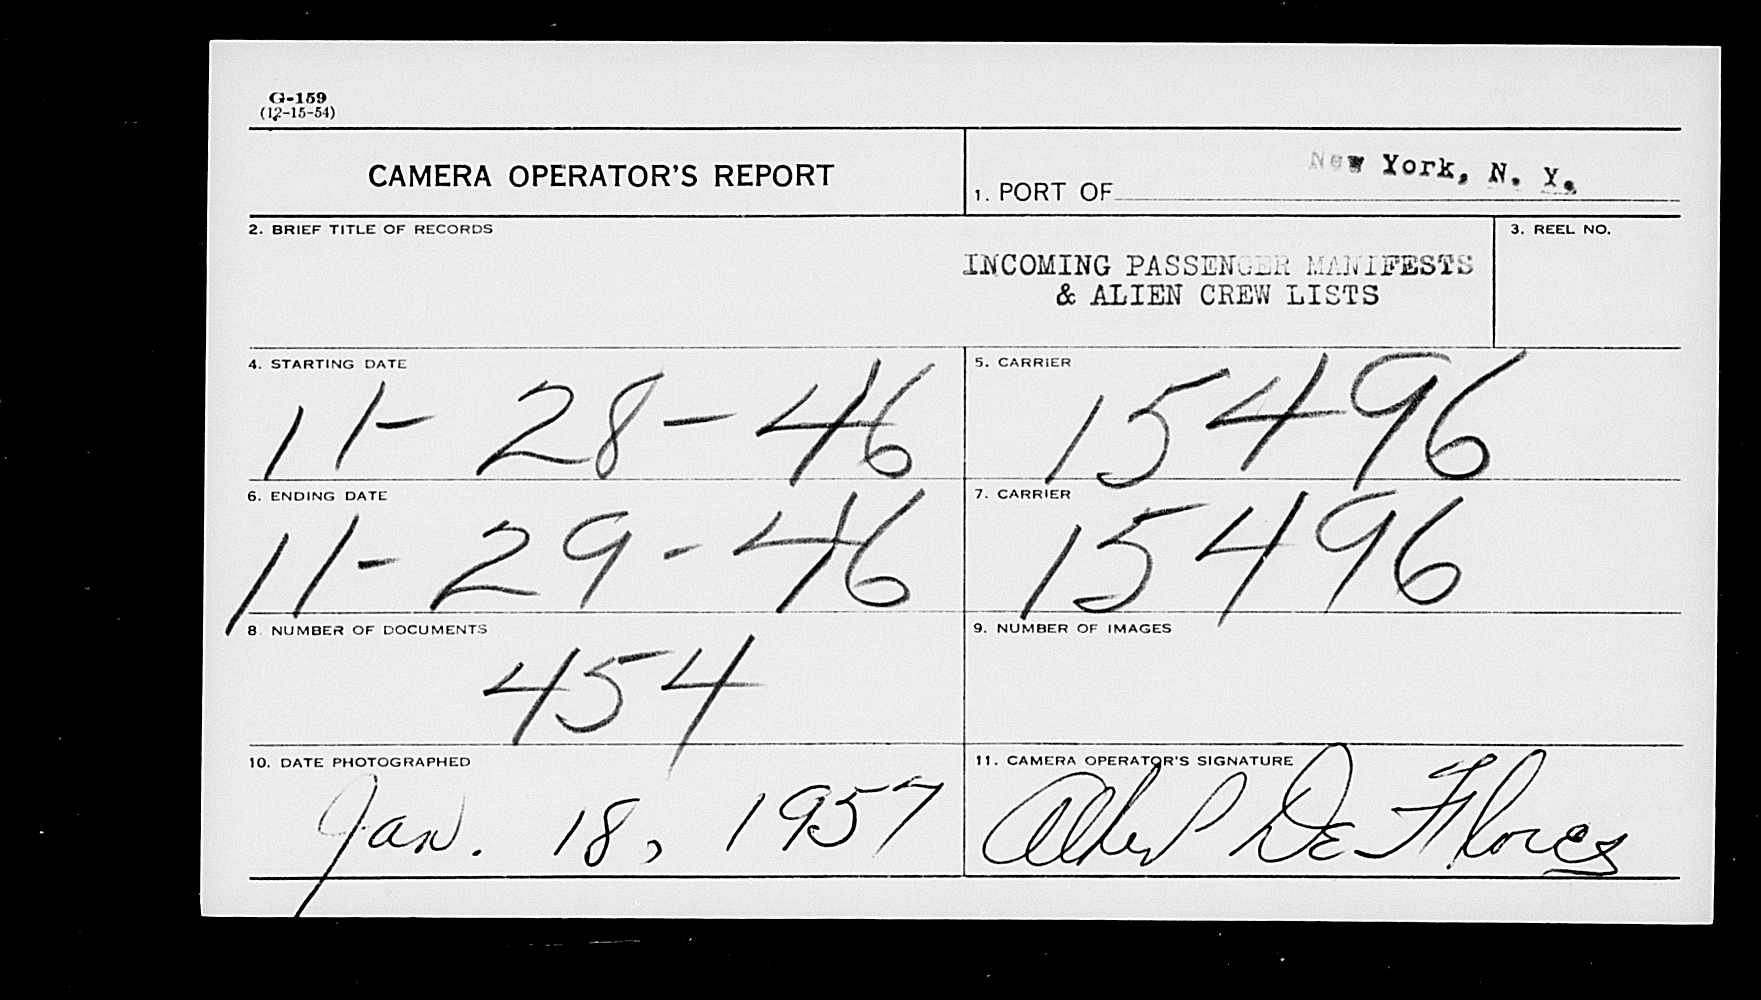 G-159
(12-15-54)
CAMERA OPERATOR'S REPORT
1. PORT OF New York, N. Y.
2. BRIEF TITLE OF RECORDS
INCOMING PASSENGER MANIFESTS
& ALIEN CREW LISTS
3. REEL NO.
4. STARTING DATE
11-28-46
5. CARRIER
15496
6. ENDING DATE
11-29-46
7. CARRIER
15496
8. NUMBER OF DOCUMENTS
454
9. NUMBER OF IMAGES
10. DATE PHOTOGRAPHED
Jan. 18, 1957
11. CAMERA OPERATOR'S SIGNATURE
Albert De Flores